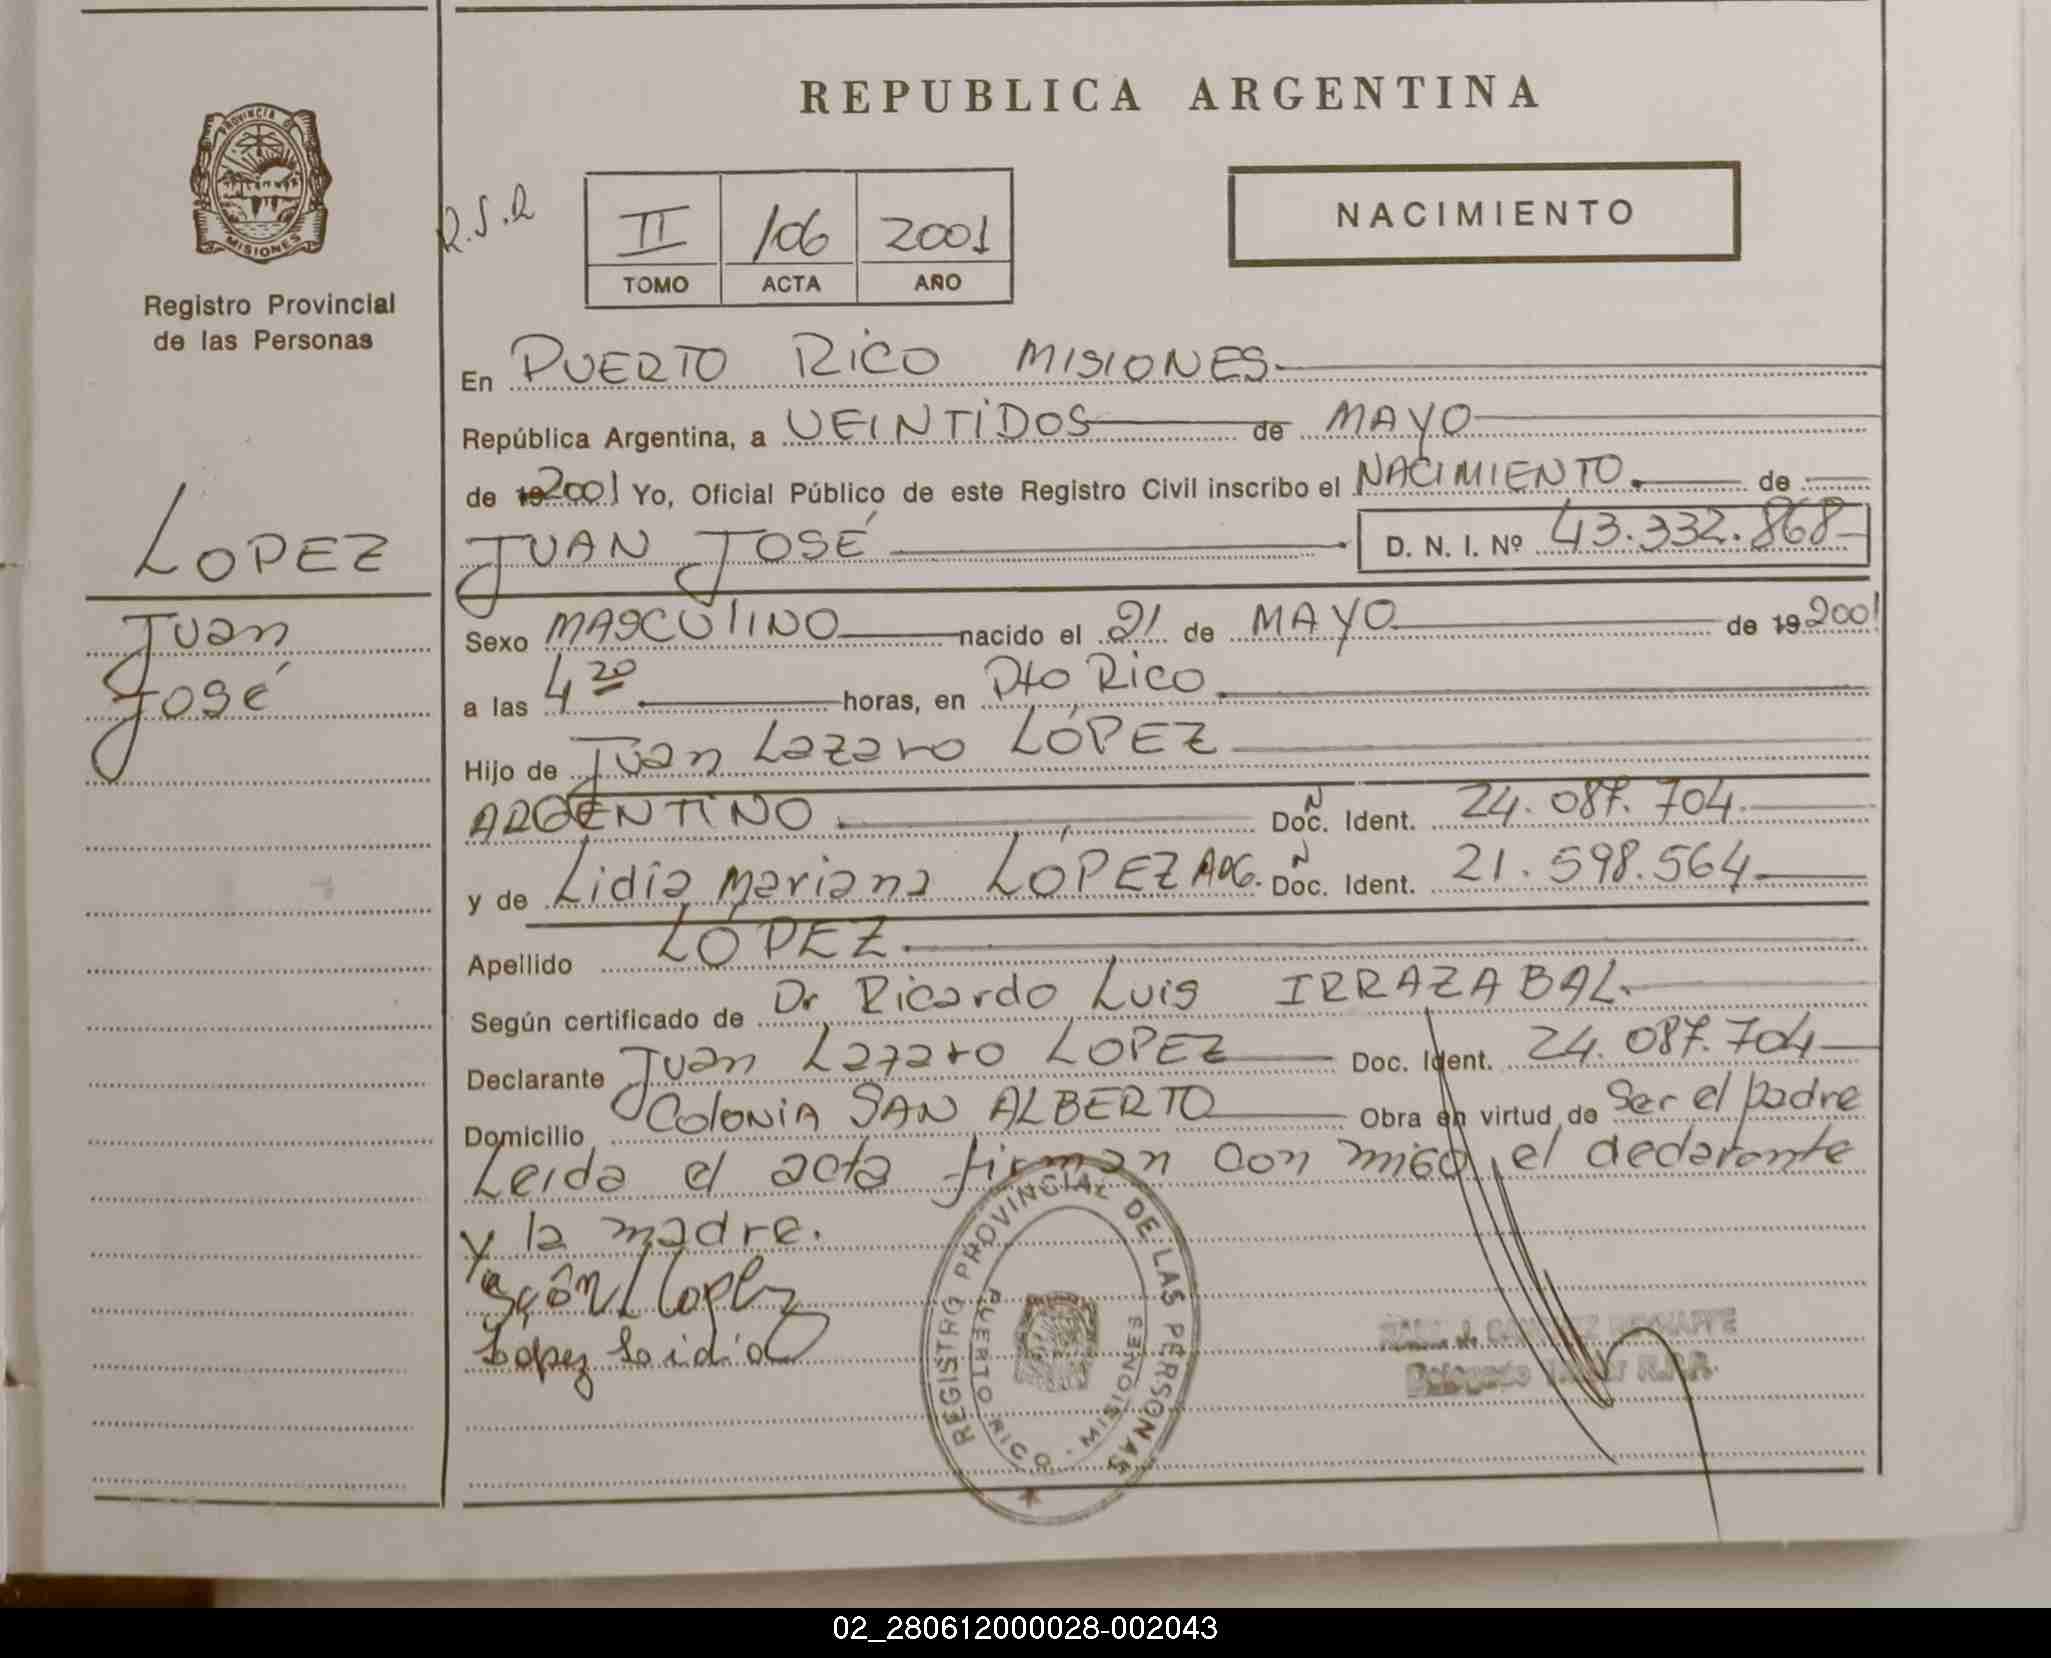 REPUBLICA ARGENTINA
PROVINCIA D
MISIONES
Registro Provincial
de las Personas
R.S.R
II 106 2001
TOMO ACTA AÑO
NACIMIENTO
En PUERTO RICO MISIONES
República Argentina, a VEINTIDOS de MAYO
de 2001 Yo, Oficial Público de este Registro Civil inscribo el NACIMIENTO. de
JUAN JOSÉ D. N. I. Nº 43.332.868
LOPEZ
Juan
José
Sexo MASCULINO nacido el 21 de MAYO de 19 2001
a las 4 20 horas, en Pto Rico
Hijo de Juan Lazaro LÓPEZ
ARGENTINO Doc. Ident. 24.087.704
y de Lidia Mariana LÓPEZ ARG. Doc. Ident. 21.598.564
Apellido LÓPEZ
Según certificado de Dr Ricardo Luis IRRAZABAL
Declarante Juan Lazaro LOPEZ Doc. Ident. 24.087.704
Domicilio Colonia SAN ALBERTO Obra en virtud de Ser el padre
Leida el acta firman con migo, el declarante
y la madre.
López Lidia
REGISTRO PROVINCIAL DE LAS PERSONAS
PUERTO RICO - MISIONES
Delegado R.P.P.
02_280612000028-002043